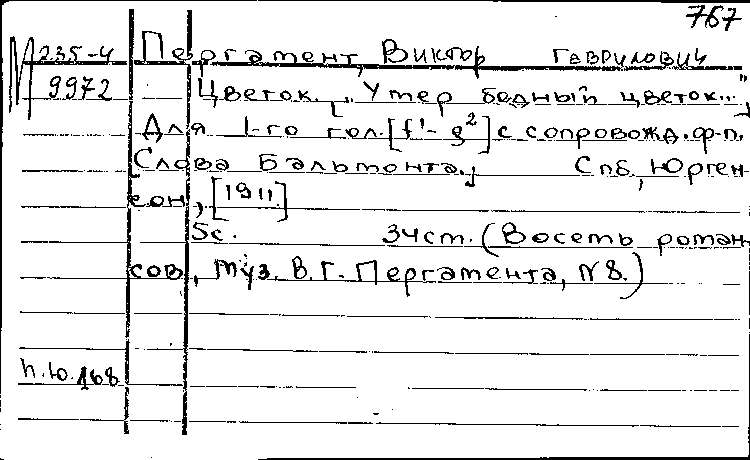 767
М 235-4 Пергамент, Виктор Гаврилович
9972 Цветок. ["Умер бедный цветок..."]
Для 1-го гол. [f¹-g²] с сопровожд. ф-п.
[Слова Бальмонта.] Спб, Юрген-
сон, [1911]
5с. 34см. (Восемь роман-
сов, муз. В.Г. Пергамента, №8.)
н.ю. 168